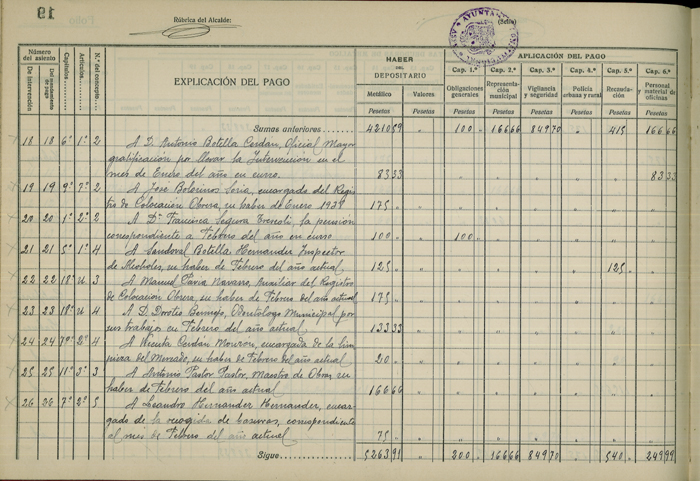 19
Folio
Rúbrica del Alcalde:
AYUNTAMIENTO
Número del asiento
De Intervención
Del mandamiento de pago
Capítulos
Artículos
N.º del concepto
EXPLICACIÓN DEL PAGO
HABER DEL DEPOSITARIO
Metálico
Valores
Pesetas
Pesetas
APLICACIÓN DEL PAGO
Cap. 1.º Cap. 2.º Cap. 3.º Cap. 4.º Cap. 5.º Cap. 6.º
Obligaciones generales
Representación municipal
Vigilancia y seguridad
Policía urbana y rural
Recaudación
Personal y material de oficinas
Pesetas Pesetas Pesetas Pesetas Pesetas Pesetas
Sumas anteriores 4210 59 " 100 " 166 66 849 70 " 415 166 66
18 18 6º 1º 2 A D. Antonio Botella Cerdán, Oficial Mayor
gratificación por llevar la Intervención en el
mes de Enero del año en curso. 83 33 83 33
19 19 9º 7º 2 A José Bolarinos Soria, encargado del Regis
tro de Colocación Obrera, su haber de Enero 1937 175 "
20 20 1º 2º 2 A Dª Francisca Segura, la pensión
correspondiente a Febrero del año en curso 100 " 100 "
21 21 5º 1º 4 A Sandoval Botella Hernander Inspector
de Alcoholes, su haber de Febrero del año actual 125 " 125 "
22 22 18º u 3 A Manuel Navarro, Auxiliar del Registro
de Colocación Obrera, su haber de Febrero del año actual 175 "
23 23 18º u 4 A D. Doroteo Bermejo, Odontólogo Municipal por
sus trabajos en Febrero del año actual 133 33
24 24 7º 2º 4 A Vicenta Cerdán Mouron, encargada de la lim
pieza del Mercado, su haber de Febrero del año actual 20 "
25 25 11º 3º 3 A Antonio Pastor Pastor, Maestro de Obras, su
haber de Febrero del año actual 166 66
26 26 7º 2º 5 A Leandro Hernander Hernander, encar
gado de la recogida de basuras, correspondiente
al mes de Febrero del año actual 75 "
Sigue 5263 91 " 200 " 166 66 849 70 " 540 " 249 99